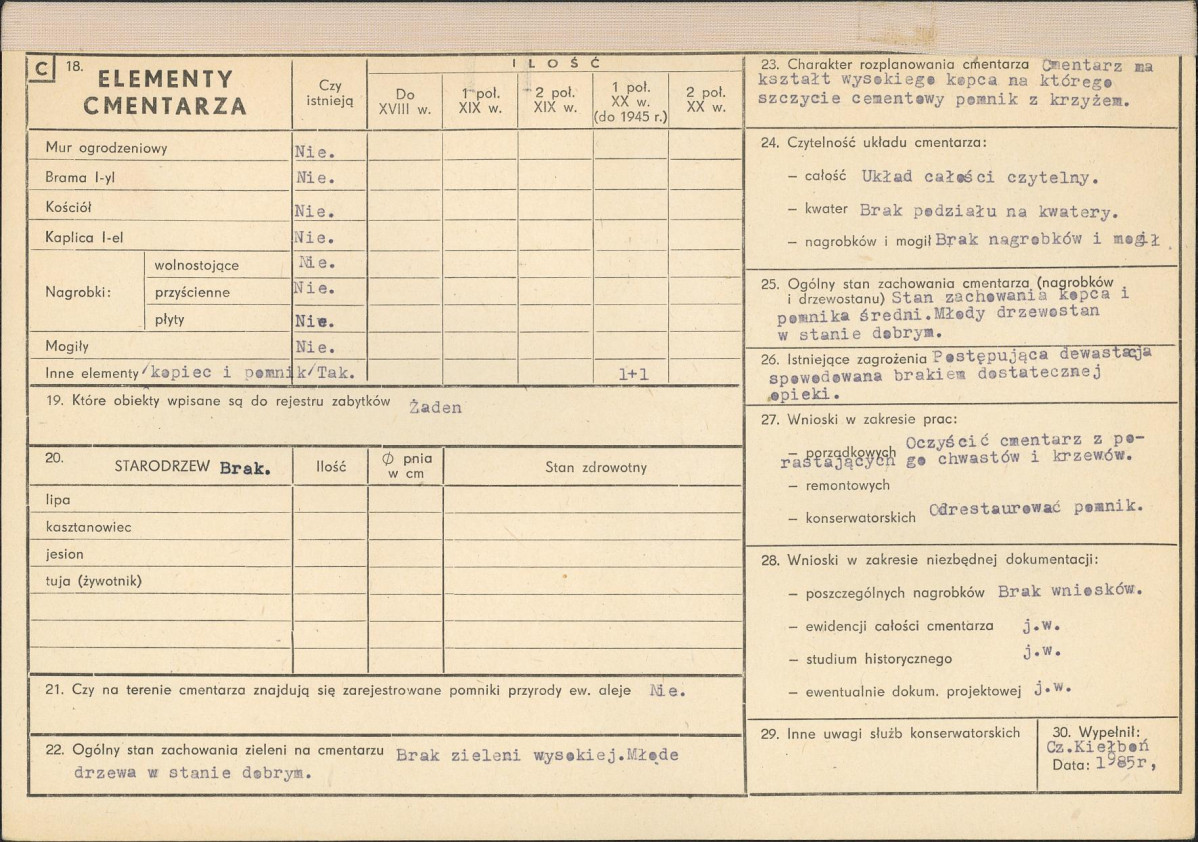 C 18. ELEMENTY CMENTARZA
Czy istnieją
ILOŚĆ
Do XVIII w.
1 poł. XIX w.
2 poł. XIX w.
1 poł. XX w. (do 1945 r.)
2 poł. XX w.
Mur ogrodzeniowy Nie.
Brama I-yl Nie.
Kościół Nie.
Kaplica I-el Nie.
Nagrobki:
wolnostojące Nie.
przyścienne Nie.
płyty Nie.
Mogiły Nie.
Inne elementy /kopiec i pomnik/Tak. 1+1
19. Które obiekty wpisane są do rejestru zabytków Żaden
20. STARODRZEW Brak.
Ilość
Ø pnia w cm
Stan zdrowotny
lipa
kasztanowiec
jesion
tuja (żywotnik)
21. Czy na terenie cmentarza znajdują się zarejestrowane pomniki przyrody ew. aleje Nie.
22. Ogólny stan zachowania zieleni na cmentarzu Brak zieleni wysokiej.Młode
drzewa w stanie dobrym.
23. Charakter rozplanowania cmentarza Cmentarz ma
kształt wysokiego kopca na którego
szczycie cementowy pomnik z krzyżem.
24. Czytelność układu cmentarza:
– całość Układ całości czytelny.
– kwater Brak podziału na kwatery.
– nagrobków i mogił Brak nagrobków i mogił
25. Ogólny stan zachowania cmentarza (nagrobków
i drzewostanu) Stan zachowania kopca i
pomnika średni.Młody drzewostan
w stanie dobrym.
26. Istniejące zagrożenia Postępująca dewastacja
spowodowana brakiem dostatecznej
opieki.
27. Wnioski w zakresie prac:
– porządkowych Oczyścić cmentarz z po-
rastających go chwastów i krzewów.
– remontowych
– konserwatorskich Odrestaurować pomnik.
28. Wnioski w zakresie niezbędnej dokumentacji:
– poszczególnych nagrobków Brak wniosków.
– ewidencji całości cmentarza j.w.
– studium historycznego j.w.
– ewentualnie dokum. projektowej j.w.
29. Inne uwagi służb konserwatorskich
30. Wypełnił:
Cz.Kiełboń
Data: 1985r,